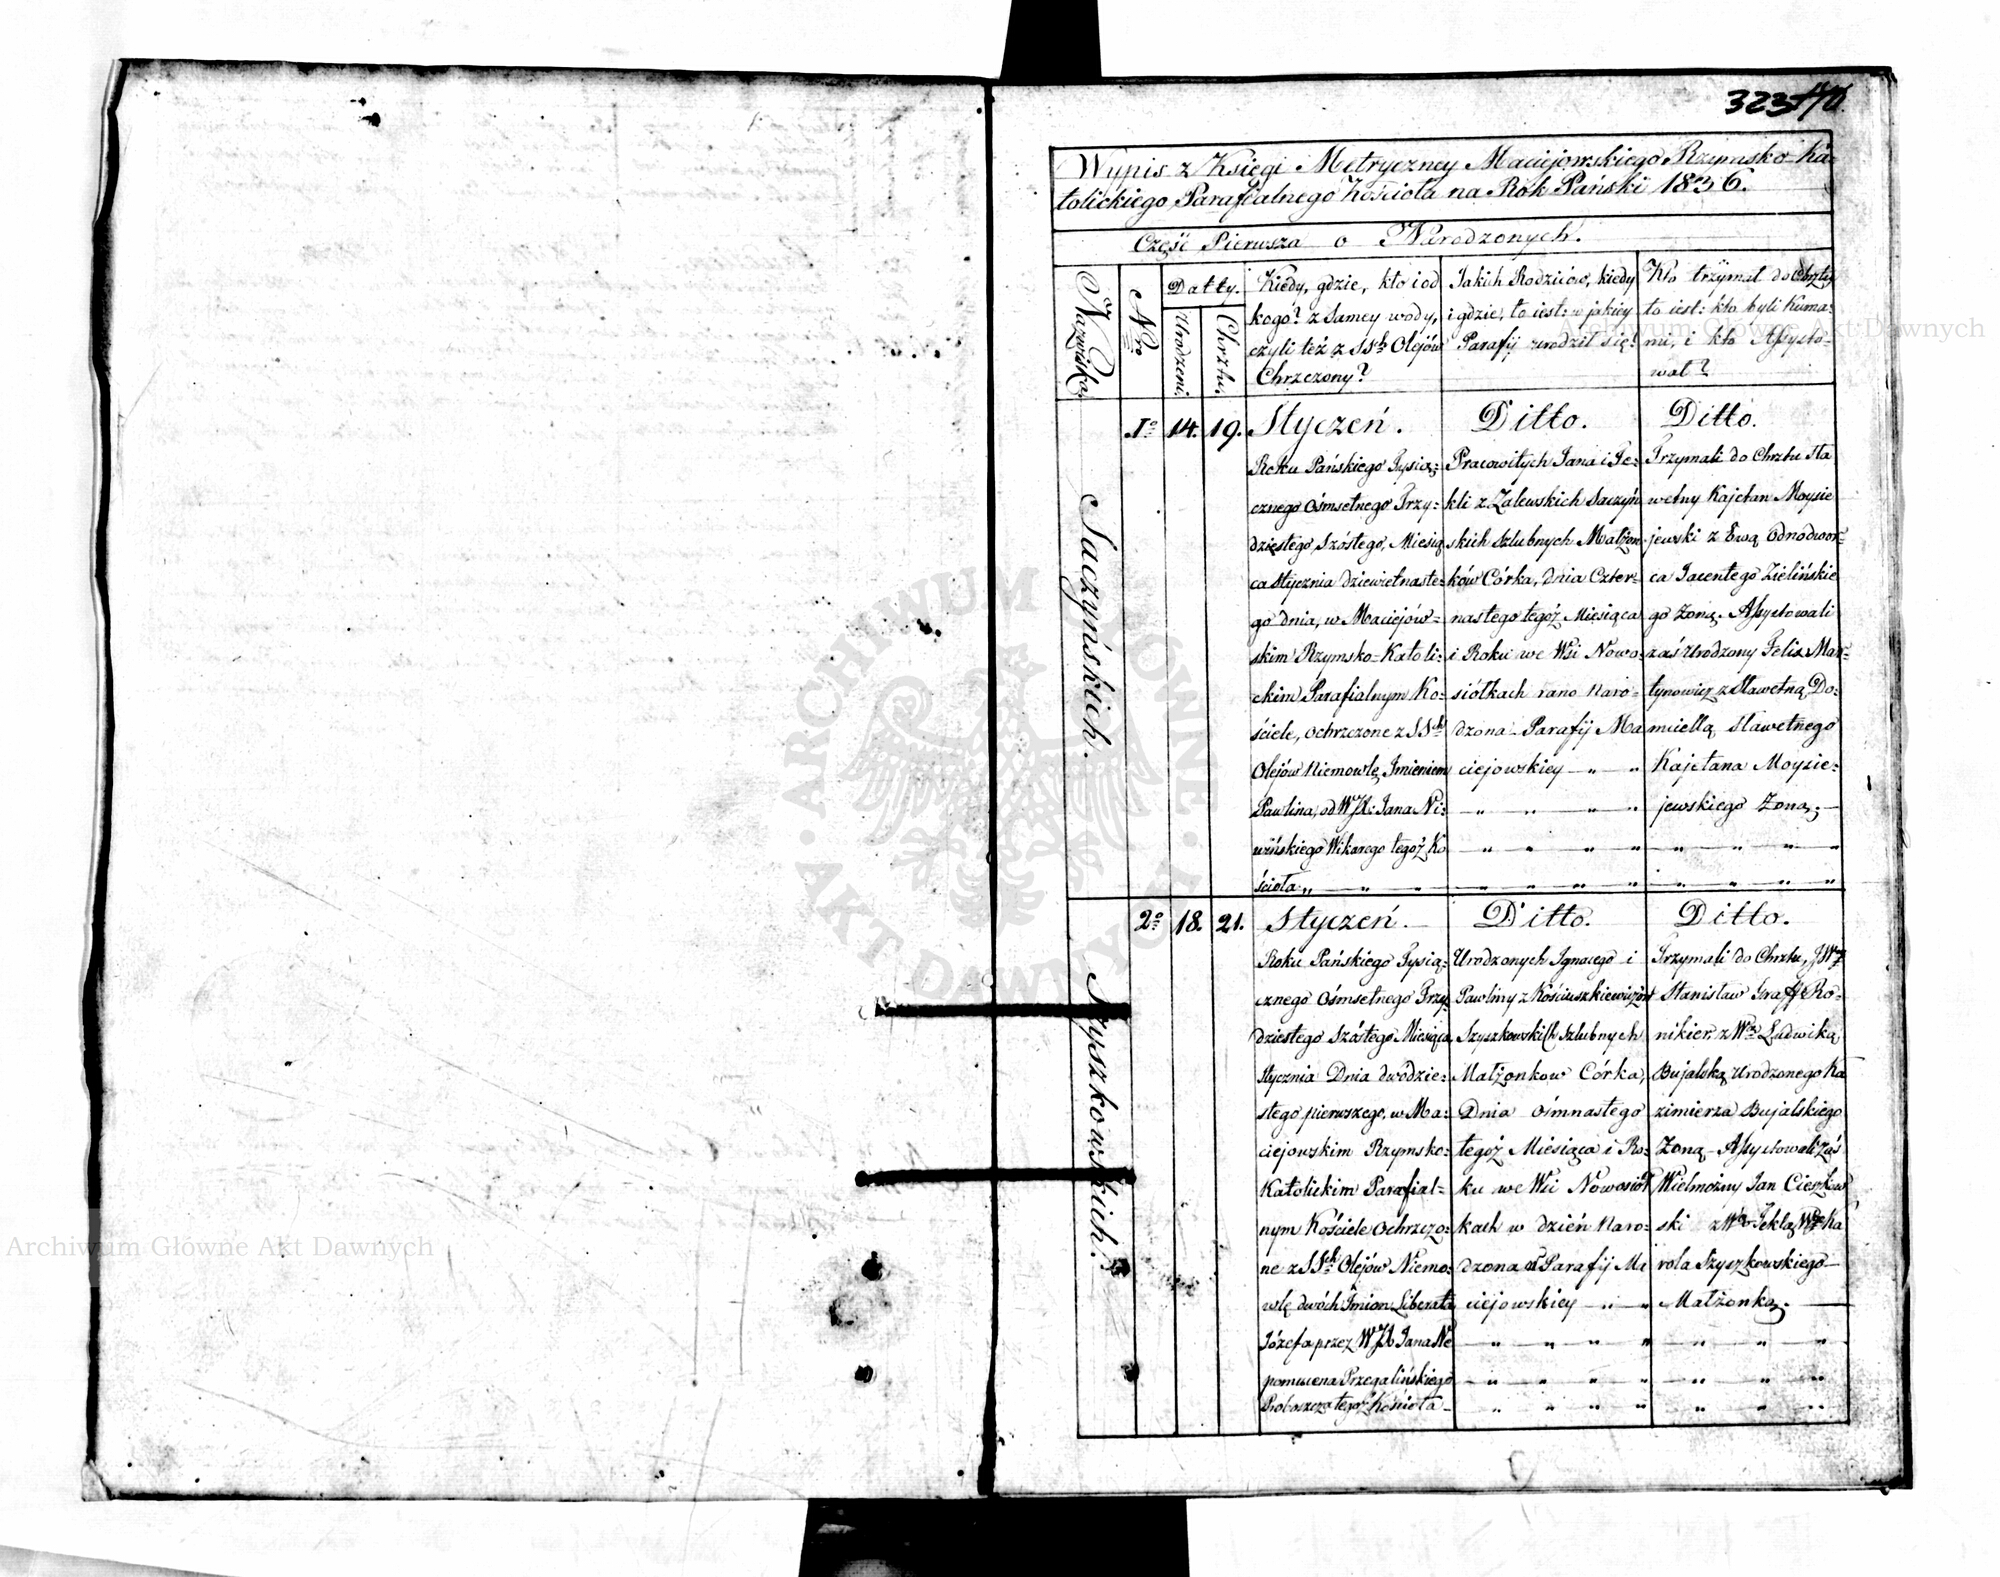 323
Wypis z Księgi Metryczney Maciejowskiego Rzymsko-Ka=
tolickiego Parafialnego Kościoła na Rok Pański 1836.
Część Pierwsza o Narodzonych.
Nazwiska.
Nro
Datty.
Urodzeni.
Chrztu.
Kiedy, gdzie, kto i od
kogo? z Samey wody,
czyli też z SSch Olejów
Chrzczony?
Jakich Rodziców, kiedy
i gdzie, to iest: w jakiey
Parafij urodził się?
Kto trzymał do Chrztu,
to iest: kto byli Kuma=
mi, i kto Assysto=
wał?
Saczyńskich.
1o 14. 19.
Styczeń.
Roku Pańskiego Tysią=
cznego Ośmsetnego Trzy=
dziestego Szóstego, Miesią
ca Stycznia dziewietnaste=
go dnia, w Maciejów=
skim Rzymsko-Katoli=
ckim Parafialnym Ko=
ściele, ochrzczone z SSch
Olejów Niemowlę, Imieniem
Pawlina, od WJX: Jana Ni=
wińskiego Wikarego tegoż Ko
ścioła „ — „ — „
Ditto.
Pracowitych Jana i Te=
kli z Zalewskich Saczyń
skich Szlubnych Małżon
ków Córka, dnia Czter=
nastego tegóż Miesiąca
i Roku we Wsi Nowo=
siółkach rano naro=
dzona - Parafij Ma
ciejowskiey — „ — „
Ditto.
Trzymali do Chrztu Sła
wetny Kajetan Moysie
jewski z Ewą Odnodwor=
ca Jacentego Zielińskie
go Żoną. Assystowali
zaś Urodzony Felix Mar=
tynowicz z Sławetną Do=
micellą, Sławetnego
Kajetana Moyzie=
jewskiego Żoną; —
Szyszkowskich.
2o 18. 21.
Styczeń.
Roku Pańskiego Tysią=
cznego Ośmsetnego Trzy
dziestego Szóstego Miesiąca
Stycznia Dnia dwódzie=
stego pierwszego, w Ma=
ciejowskim Rzymsko=
Katolickim Parafial=
nym Kościele Ochrzczo=
ne z SSch Olejów Niemo=
wlę dwóch Imion Liberata
Józefa przez WJX Jana Ne
pomucena Przegalińskiego
Proboszcza tegoż Kościoła —
Ditto.
Urodzonych Ignacego i
Pawliny z Kościuszkiewiczów
Szyszkowskich Szlubnych
Małżonkow Córka,
Dnia ośmnastego
tegoż Miesiąca i Ro=
ku we Wsi Nowosioł
kach w dzień naro=
dzona Parafij Ma
ciejowskiey — „ — „
Ditto.
Trzymali do Chrztu, JW
Stanisław Graff Ro=
nikier, z Wą Ludwiką
Bujalską Urodzonego Ka
zimierza Bujalskiego
Żoną - Assystowali zaś
Wielmożny Jan Cieszkow
ski z Wą Teklą Ka
rola Szyszkowskiego —
Małżonką. —
ARCHIWUM GŁÓWNE · AKT DAWNYCH ·
Archiwum Główne Akt Dawnych
Archiwum Główne Akt Dawnych